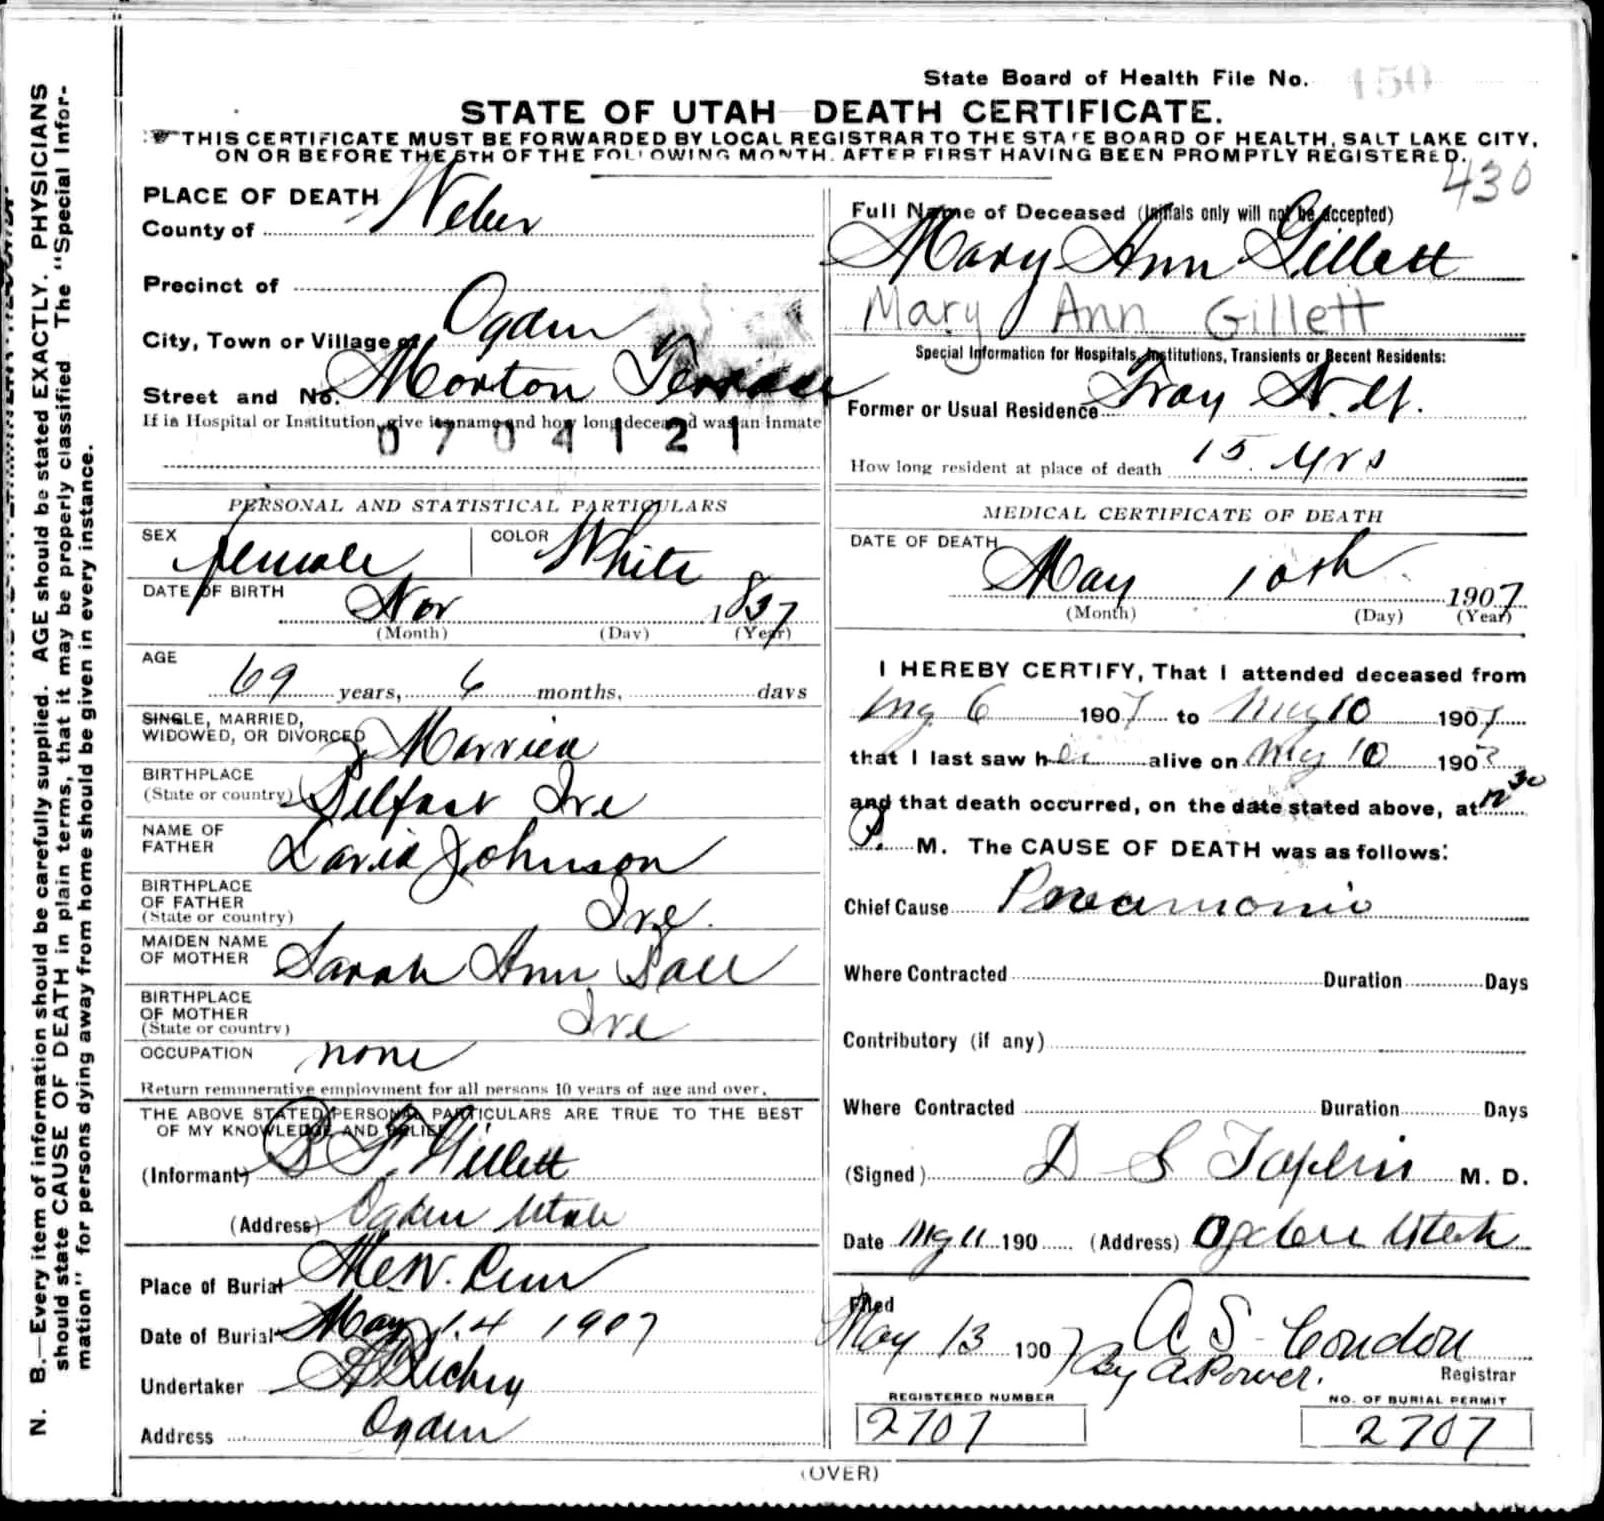 State Board of Health File No. 150
STATE OF UTAH—DEATH CERTIFICATE.
THIS CERTIFICATE MUST BE FORWARDED BY LOCAL REGISTRAR TO THE STATE BOARD OF HEALTH, SALT LAKE CITY,
ON OR BEFORE THE 5TH OF THE FOLLOWING MONTH, AFTER FIRST HAVING BEEN PROMPTLY REGISTERED.
430
N. B.—Every item of information should be carefully supplied. AGE should be stated EXACTLY. PHYSICIANS
should state CAUSE OF DEATH in plain terms, that it may be properly classified. The "Special Infor-
mation" for persons dying away from home should be given in every instance.
PLACE OF DEATH
County of Weber
Precinct of
City, Town or Village of Ogden
Street and No. Morton Terrace
If in Hospital or Institution, give its name and how long deceased was an inmate
0704121
PERSONAL AND STATISTICAL PARTICULARS
SEX female COLOR White
DATE OF BIRTH Nov 1837
(Month) (Day) (Year)
AGE
69 years, 6 months, days
SINGLE, MARRIED,
WIDOWED, OR DIVORCED Married
BIRTHPLACE
(State or country) Belfast Ire
NAME OF
FATHER David Johnson
BIRTHPLACE
OF FATHER
(State or country) Ire.
MAIDEN NAME
OF MOTHER Sarah Ann
BIRTHPLACE
OF MOTHER
(State or country) Ire
OCCUPATION none
Return remunerative employment for all persons 10 years of age and over.
THE ABOVE STATED PERSONAL PARTICULARS ARE TRUE TO THE BEST
OF MY KNOWLEDGE AND BELIEF
(Informant) B F. Gillett
(Address) Ogden Utah
Place of Burial
Date of Burial May 14 1907
Undertaker
Address Ogden
Full Name of Deceased (Initials only will not be accepted)
Mary Ann Gillett
Mary Ann Gillett
Special Information for Hospitals, Institutions, Transients or Recent Residents:
Former or Usual Residence Troy N.Y.
How long resident at place of death 15 yrs
MEDICAL CERTIFICATE OF DEATH
DATE OF DEATH
May 10th 1907
(Month) (Day) (Year)
I HEREBY CERTIFY, That I attended deceased from
My 6 1907 to May 10 1907
that I last saw her alive on My 10 190
and that death occurred, on the date stated above, at 12 30
P. M. The CAUSE OF DEATH was as follows:
Chief Cause Pneumonia
Where Contracted Duration Days
Contributory (if any)
Where Contracted Duration Days
(Signed) D S Taplin M. D.
Date My 11 190 (Address) Ogden Utah
Filed
May 13 1907 A S Condon
By A. Power. Registrar
REGISTERED NUMBER NO. OF BURIAL PERMIT
2707 2707
(OVER)